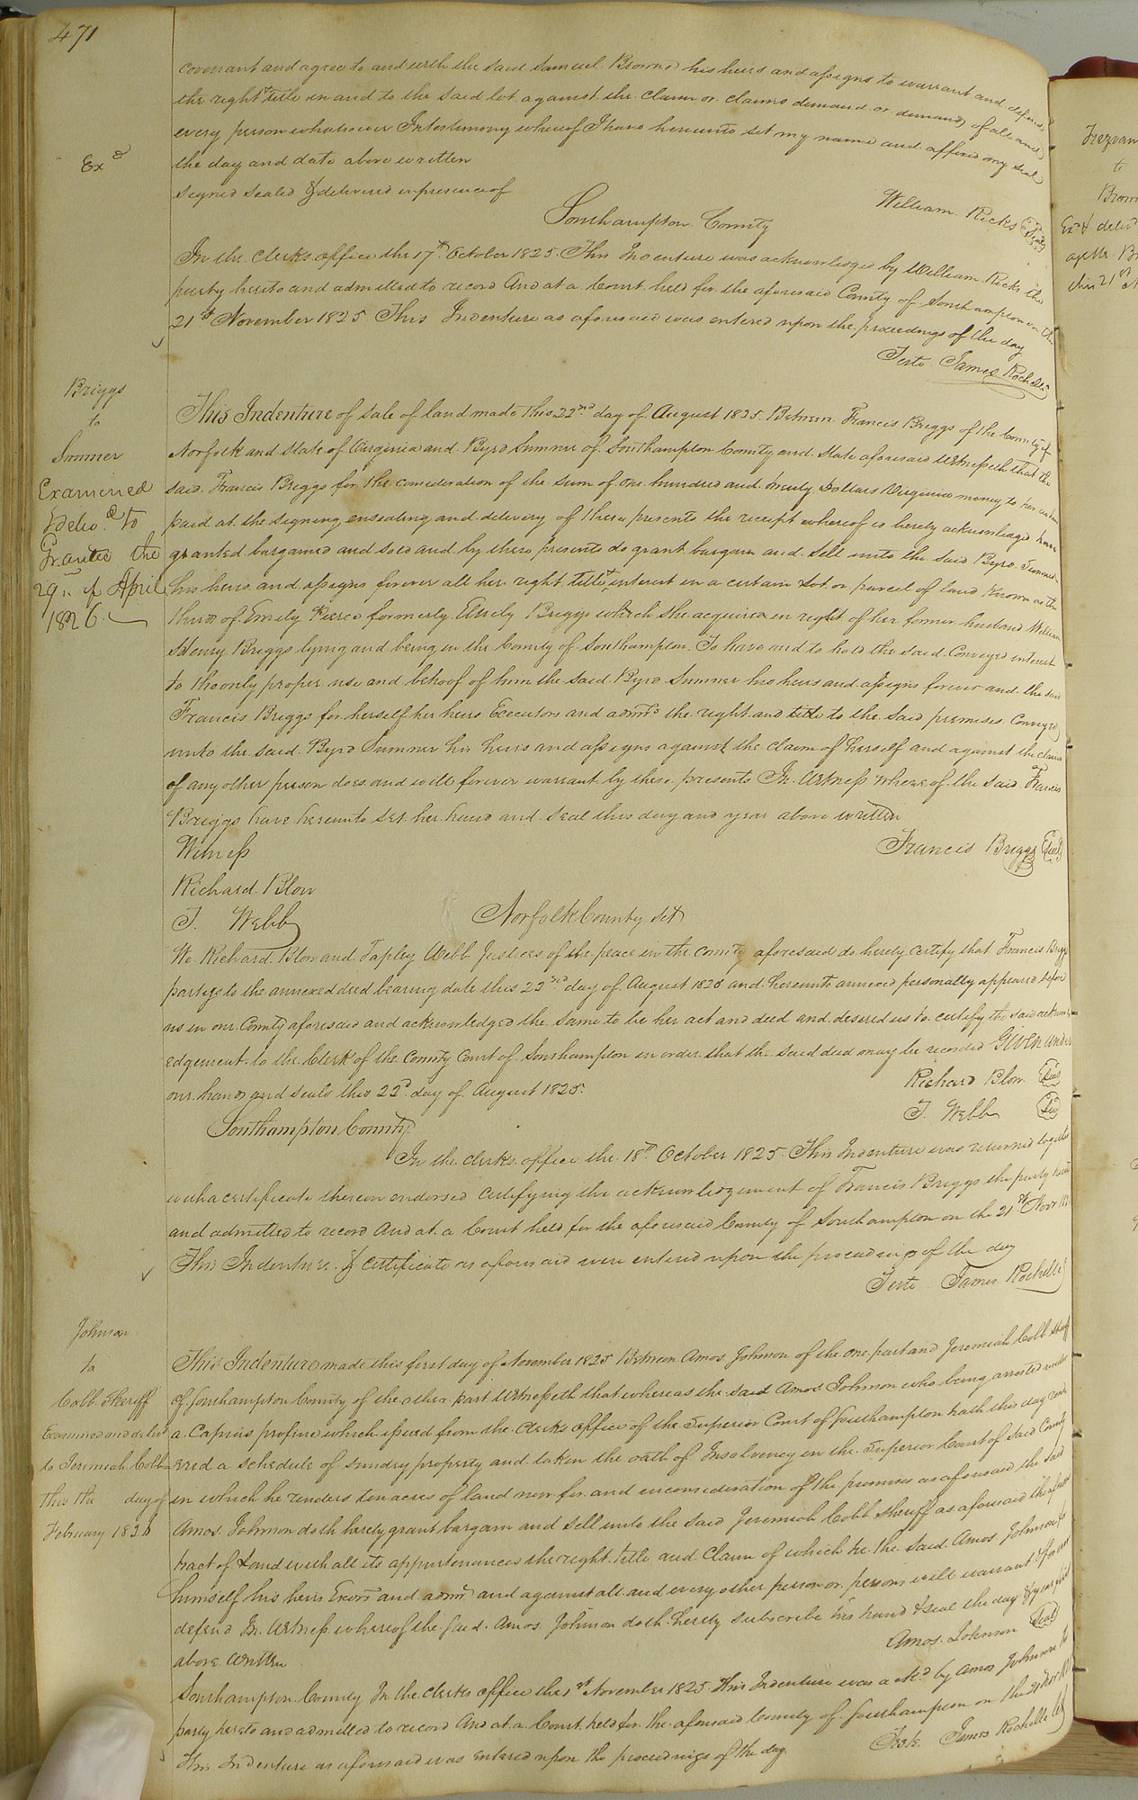 471
covenant and agree to and with the said Samuel Browne his heirs and assigns to warrant and defend
the right & title in and to the said lot against the claim or claims demand or demands of all and
every person whatsoever In testimony whereof I have hereunto set my name and affixed my seal
Exd
the day and date above written
signed sealed & delivered in presence of
William Ricks Seal
Southampton County
In the clerks office the 17th October 1825 This Indenture was acknowledged by William Ricks the
party hereto and admitted to record And at a Court held for the aforesaid County of Southampton on the
21st November 1825 This Indenture as aforesaid was entered upon the proceedings of the day
Teste James Rochelle
Briggs
to
Summer
Examined
& delivd to
Grantee the
29th of April
1826
This Indenture of sale of land made this 22nd day of August 1825 Between Francis Briggs of the County of
Norfolk and State of Virginia and Byrd Summer of Southampton County and State aforesaid Witnesseth that the
said Francis Briggs for the consideration of the sum of one hundred and twenty Dollars Virginia money to her in hand
paid at the signing ensealing and delivery of these presents the receipt whereof is hereby acknowledged have
granted bargained and sold and by these presents do grant bargain and sell unto the said Byrd Summer
his heirs and assigns forever all her right title interest in a certain Lot or parcel of land known as the
thirds of Emily Pierce formerly Emily Briggs which she acquired in right of her former husband William
Henry Briggs lying and being in the County of Southampton To have and to hold the said Conveyed interest
to the only proper use and behoof of him the said Byrd Summer his heirs and assigns forever and the said
Francis Briggs for herself her heirs Executors and admrs the right and title to the said premises Conveyed
unto the said Byrd Summer his heirs and assigns against the claim of herself and against the claim
of any other person does and will forever warrant by these presents In Witness whereof the said Francis
Briggs have hereunto set her hand and seal this day and year above written
Witness
Francis Briggs Seal
Richard Blow
T. Webb
Norfolk County Sct
We Richard Blow and Tapley Webb Justices of the peace in the county aforesaid do hereby certify that Francis Briggs
party to the annexed deed bearing date this 22nd day of August 1825 and hereunto annexed personally appeared before
us in our County aforesaid and acknowledged the same to be her act and deed and desired us to certify the said acknowl
edgement to the Clerk of the County Court of Southampton in order that the said deed may be recorded Given under
our hands and seals this 22d day of August 1825
Richard Blow Seal
T. Webb Seal
Southampton County
In the clerks office the 18th October 1825 This Indenture was returned together
with a certificate thereon endorsed certifying the acknowledgement of Francis Briggs the party hereto
and admitted to record And at a Court held for the aforesaid County of Southampton on the 21st Novr
This Indenture & certificate as aforesaid were entered upon the proceedings of the day
Teste James Rochelle
Johnson
to
Cobb Sheriff
Examined and delivd
to Jeremiah Cobb
this the day of
February 1826
This Indenture made this first day of November 1825 Between Amos Johnson of the one part and Jeremiah Cobb Sheriff
of Southampton County of the other part Witnesseth that whereas the said Amos Johnson who being arrested under
a Capias profine which issued from the Clerks office of the Superior Court of Southampton hath this day rend
ered a schedule of sundry property and taken the oath of Insolvency in the Superior Court of said County
in which he renders ten acres of land now for and in consideration of the premises as aforesaid the said
Amos Johnson doth hereby grant bargain and sell unto the said Jeremiah Cobb Sheriff as aforesaid the
tract of Land with all its appurtenances the right title and Claim of which he the said Amos Johnson for
himself his heirs Exors and admrs and against all and every other person or persons will warrant & forever
defend In Witness whereof the said Amos Johnson doth hereby subscribe his hand & seal the day & year
above written
Amos Johnson Seal
Southampton County In the clerks office the 1st November 1825 This Indenture was ackd by Amos Johnson the
party hereto and admitted to record And at a Court held for the aforesaid County of Southampton on the 21st Novr
This Indenture as aforesaid was entered upon the proceedings of the day
Teste James Rochelle
to
Brown
Exd & delivd
this 21st